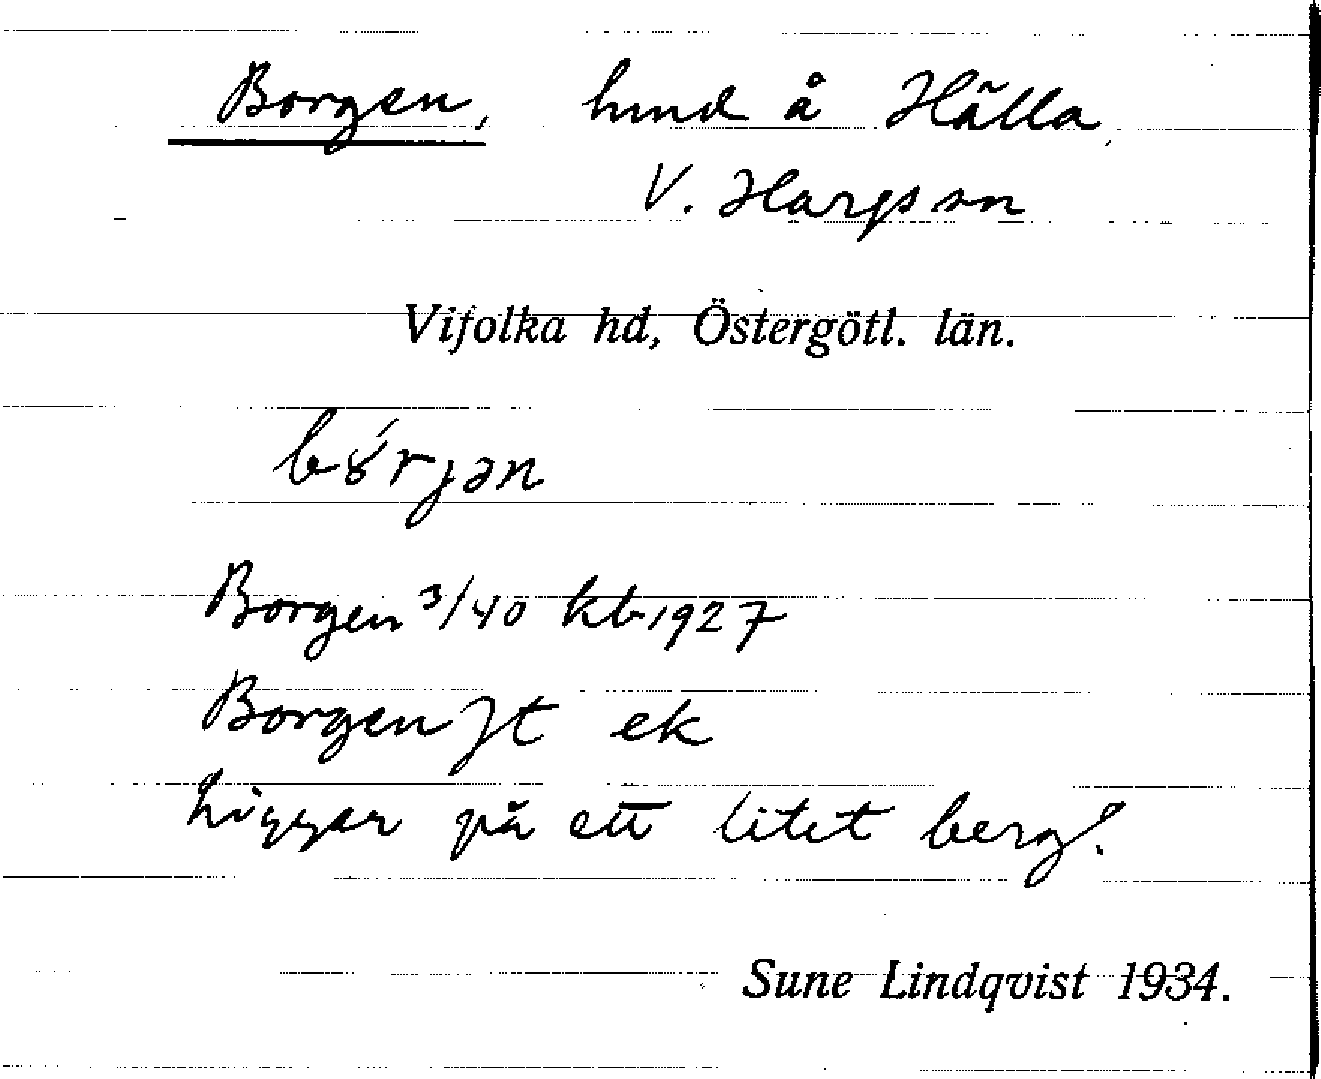 Borgen, hmd å Hälla,
V. Hargs sn
Vifolka hd, Östergötl. län.
bórjən
Borgen 3/40 kb 1927
Borgen Jt ek
Ligger på ett litet berg!
Sune Lindqvist 1934.